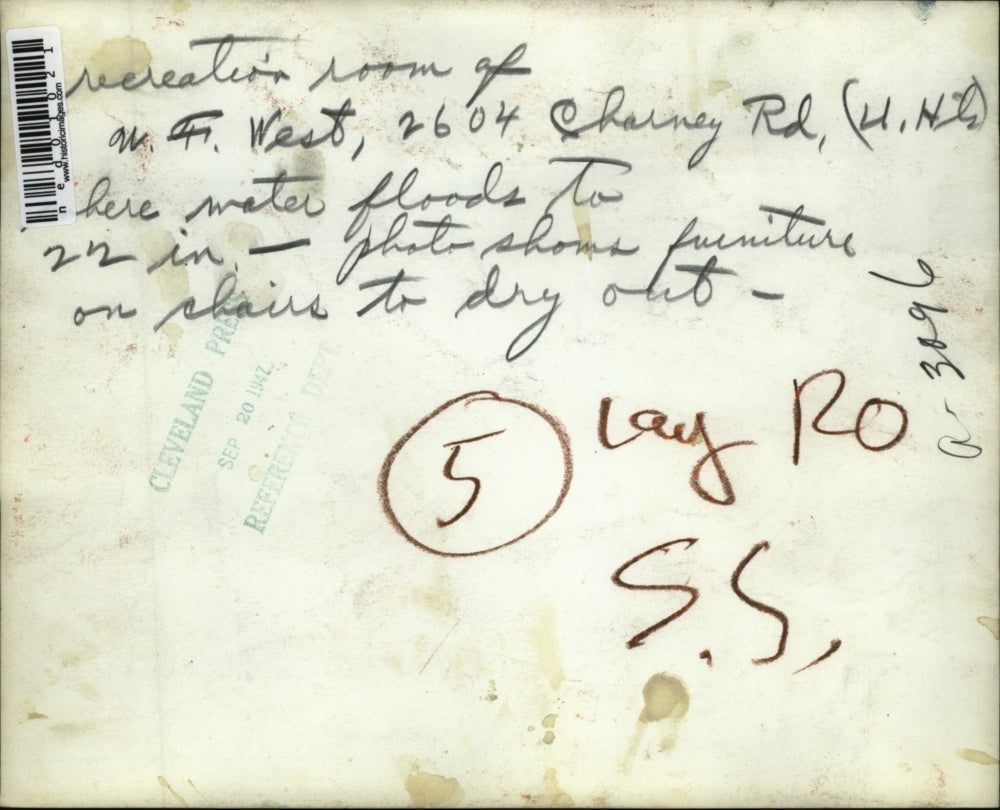 recreation room of
W. F. West, 2604 Charney Rd, (U. Hts)
here water floods to
22 in. — photo shows furniture
on chairs to dry out —
a-3096
CLEVELAND PRESS
SEP 20 1947
REFERENCE DEPT
5
Lay RO
S.S.
ned010121
www.historicimages.com